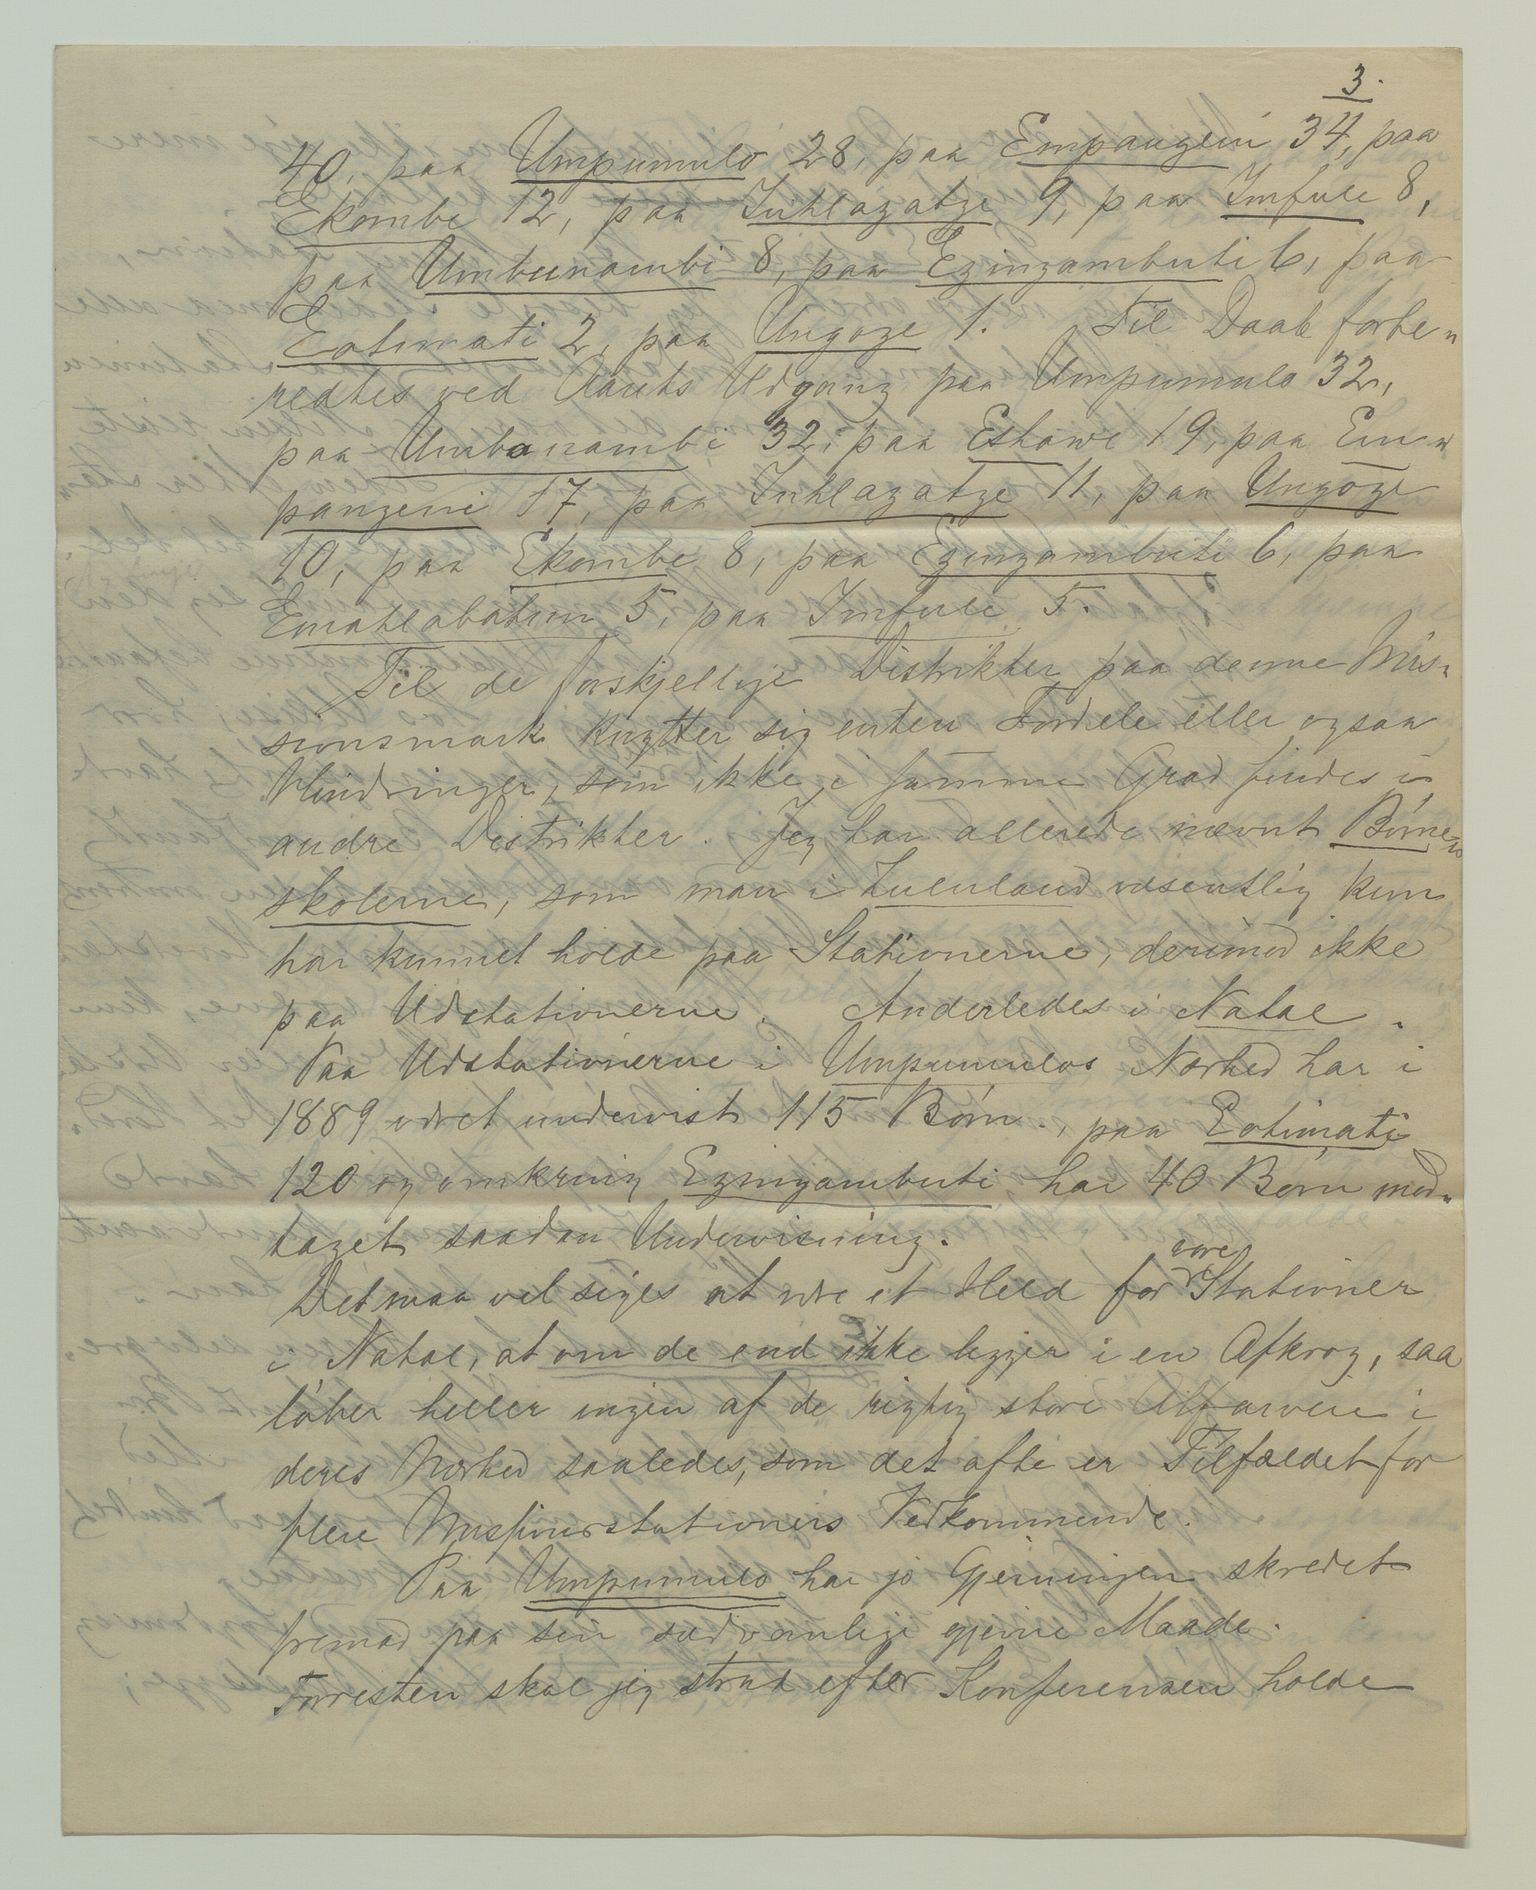 3.
40, paa Umpumulo 28, paa Empangeni 34, paa
Ekombe 12, paa Inhlazatze 9, paa Imfule 8,
paa Umbunambi 8, paa Ezinzambuti 6, paa
Eotimati 2, paa Ungoze 1. Til Daab forbe-
redtes ved Aarets Udgang paa Umpumulo 32,
paa Umbonambi 32, paa Eshowe 19, paa Em-
pangeni 17, paa Inhlazatze 11, paa Ungoze
10, paa Ekombe 8, paa Ezinzambuti 6, paa
Emahlabatini 5, paa Imfule 5.
Til de forskjellige Distrikter paa denne Mis-
sionsmark knytter sig enten Fordele eller ogsaa
Hindringer, som ikke i samme Grad findes i
andre Distrikter. Jeg har allerede nævnt Børne-
skolerne, som man i Zululand væsentlig kun
har kunnet holde paa Stationerne, derimod ikke
paa Udstationerne. Anderledes i Natal.
Paa Udstationerne i Umpumulos Nærhed har i
1889 været undervist 115 Børn, paa Eotimati
120 og omkring Ezinzambuti har 40 Børn mod-
taget saadan Undervisning.
Det maa vel siges at være et Held for vore Stationer
i Natal, at om de end ikke ligger i en Afkrog, saa
løber heller ingen af de rigtig store Alfarveie i
deres Nærhed saaledes, som det ofte er Tilfældet for
flere Missionsstationers Vedkommende.
Paa Umpumulo har jo Gjerningen skredet
fremad paa sin sædvanlige gjeine Maade.
Forresten skal jeg strax efter Konferensen holde